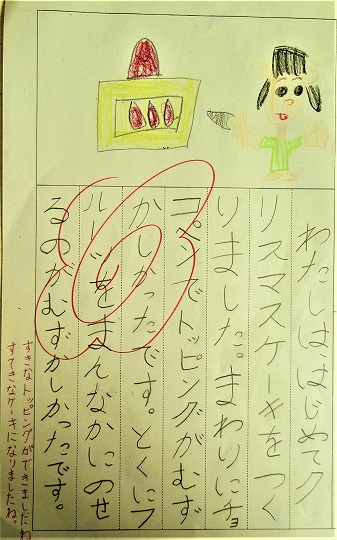 わたしは、はじめてク
リスマスケーキをつく
りました。まわりにチョ
コペンでトッピングがむず
かしかったです。とくにフ
ルーツをまんなかにのせ
るのがむずかしかったです。
すきなトッピングができましたね
すてきなケーキになりましたね。